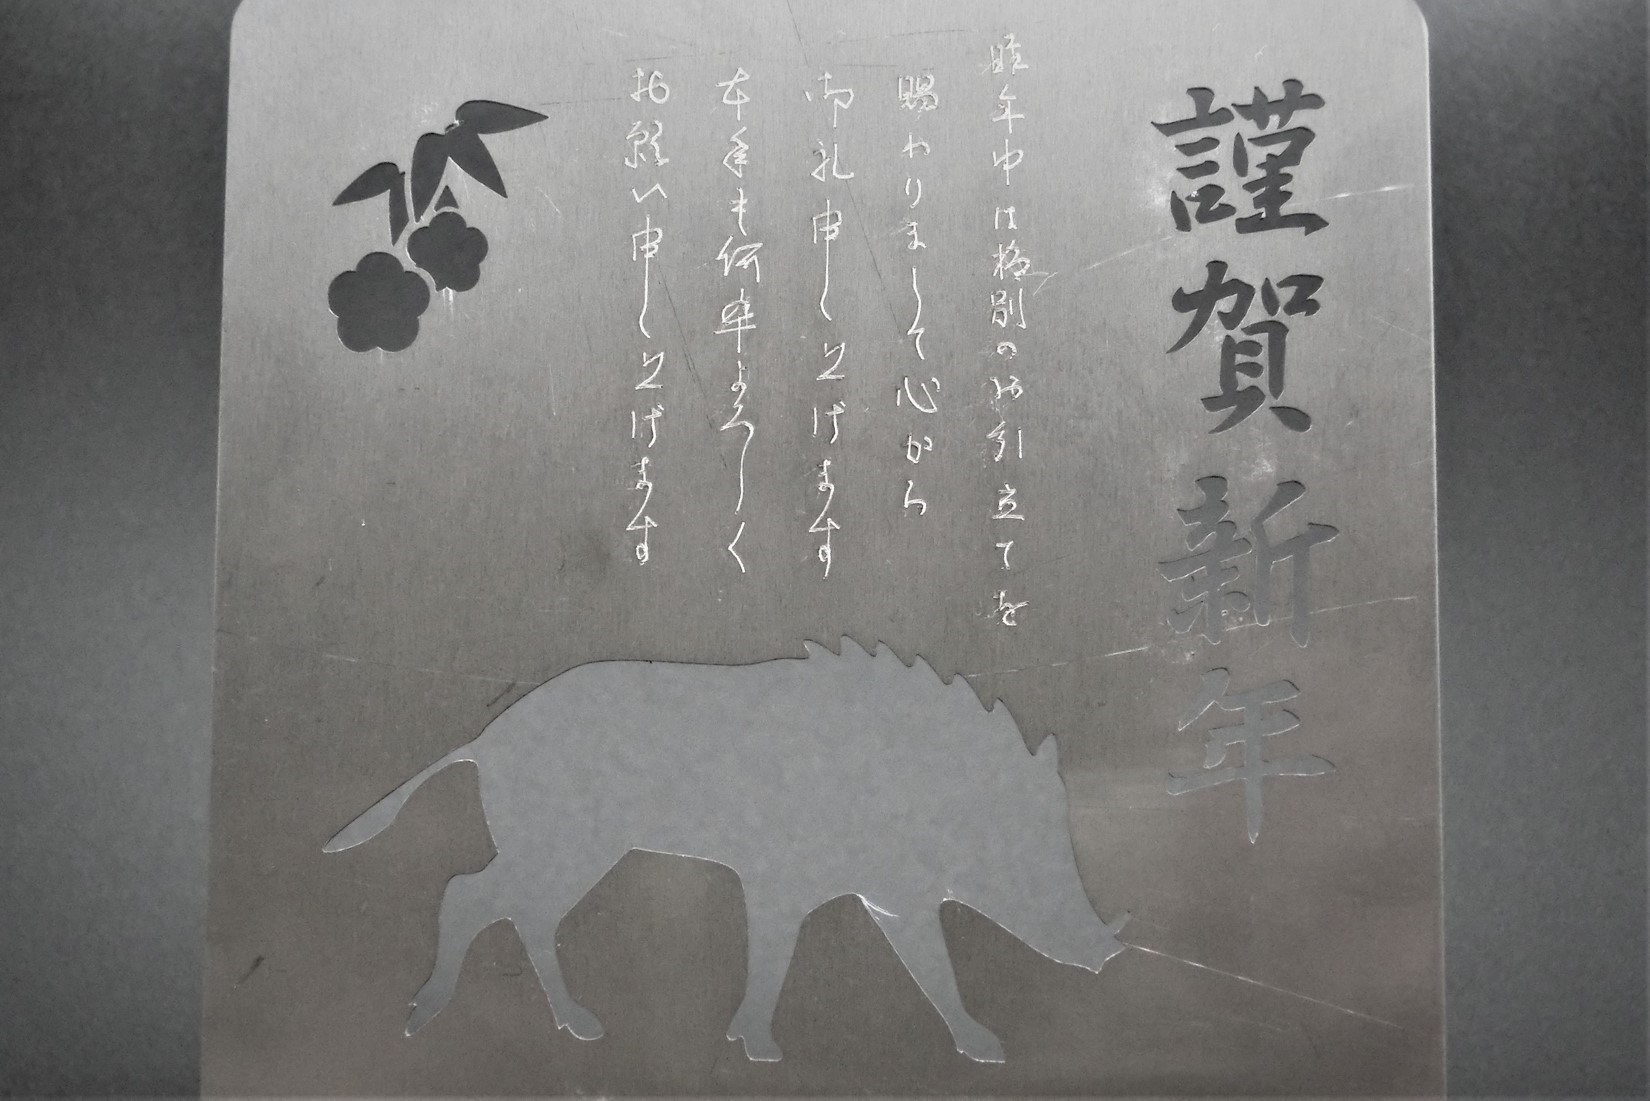 謹賀新年
昨年中は格別のお引立てを
賜わりまして心から
御礼申し上げます
本年も何卒よろしく
お願い申し上げます